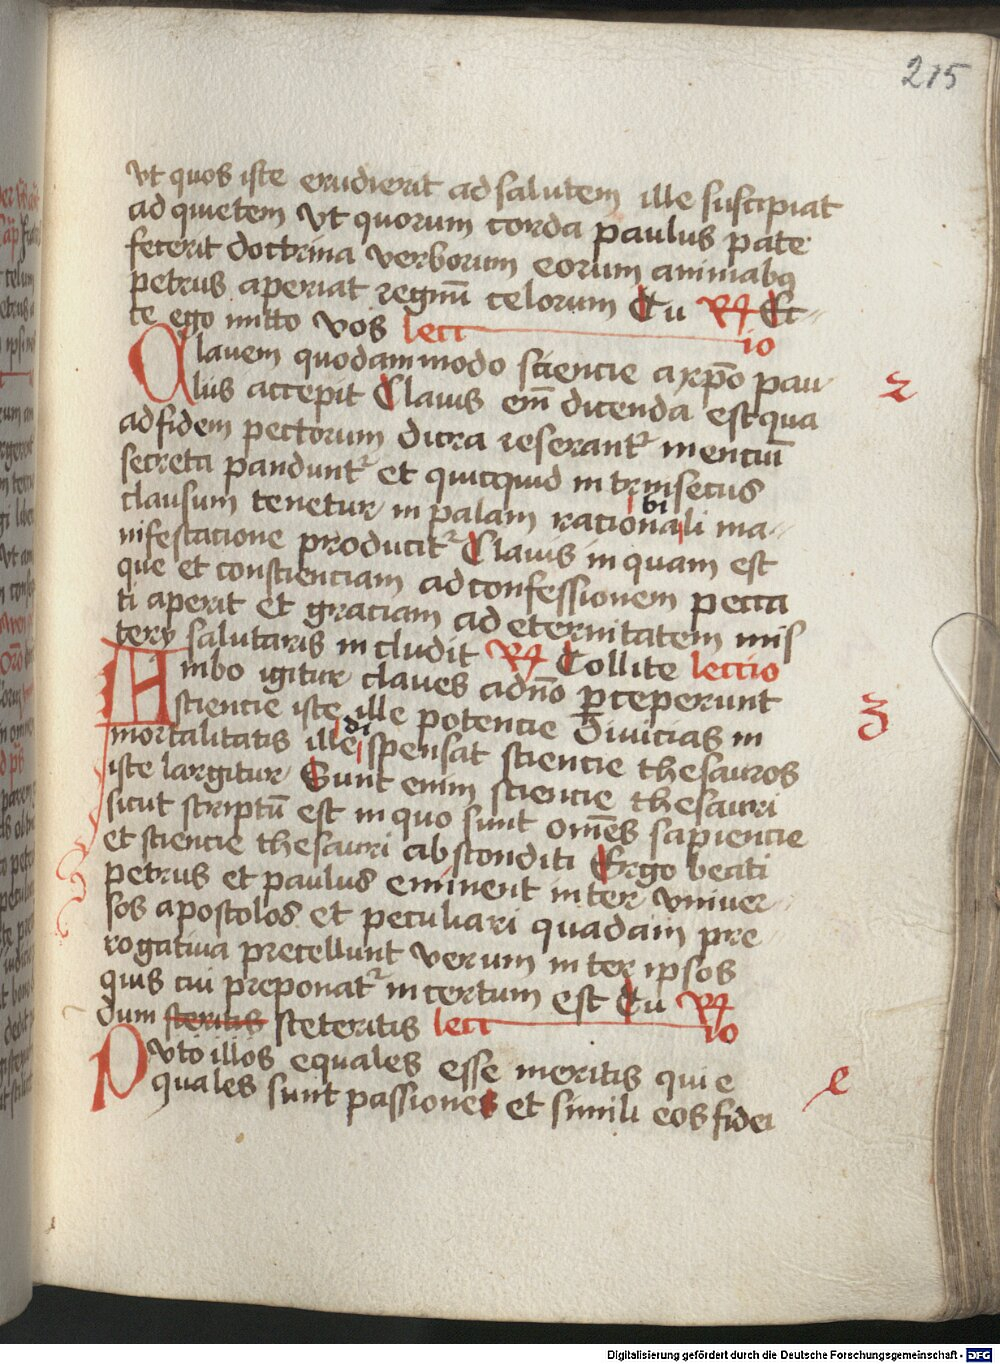 215
vt quos iste erudierit ad salutem ille suscipiat
ad quietem vt quorum corda paulus pate
fecerit doctrina verborum eorum animabꝫ
petrus aperiat regnū celorum Tu R Ec
ce ego mitto vos lecc
io
Clauem quodammodo sciencie a xp̄o pau
lus accepit Clauis em̄ dicenda est qua
ad fidem pectorum dura reserantr mencium
secreta panduntr et quicquid intrinsecus
clausum tenetur in palam racionabili ma
nifestacione producitr Clauis inquam est
que et conscienciam ad confessionem pecca
ti aperit et graciam ad eternitatem mis
terij salutaris includit R Tollite leccio
Ambo igitur claues a dn̄o ꝑceperunt
sciencie iste ille potencie Diuicias in
mortalitatis ille dispensat sciencie thesauros
iste largitur Sunt enim sciencie thesauri
sicut scriptū est in quo sunt om̄es sapiencie
et sciencie thesauri absconditi Ergo beati
petrus et paulus eminent inter vniuer
sos apostolos et peculiari quadam pre
rogatiua precellunt verum inter ipsos
quis cui preponatr incertum est Tu R
dum steritis steteritis lecc
io
Puto illos equales esse meritis qui e
quales sunt passiones et simili eos fidei
2
3
e
Digitalisierung gefördert durch die Deutsche Forschungsgemeinschaft - DFG